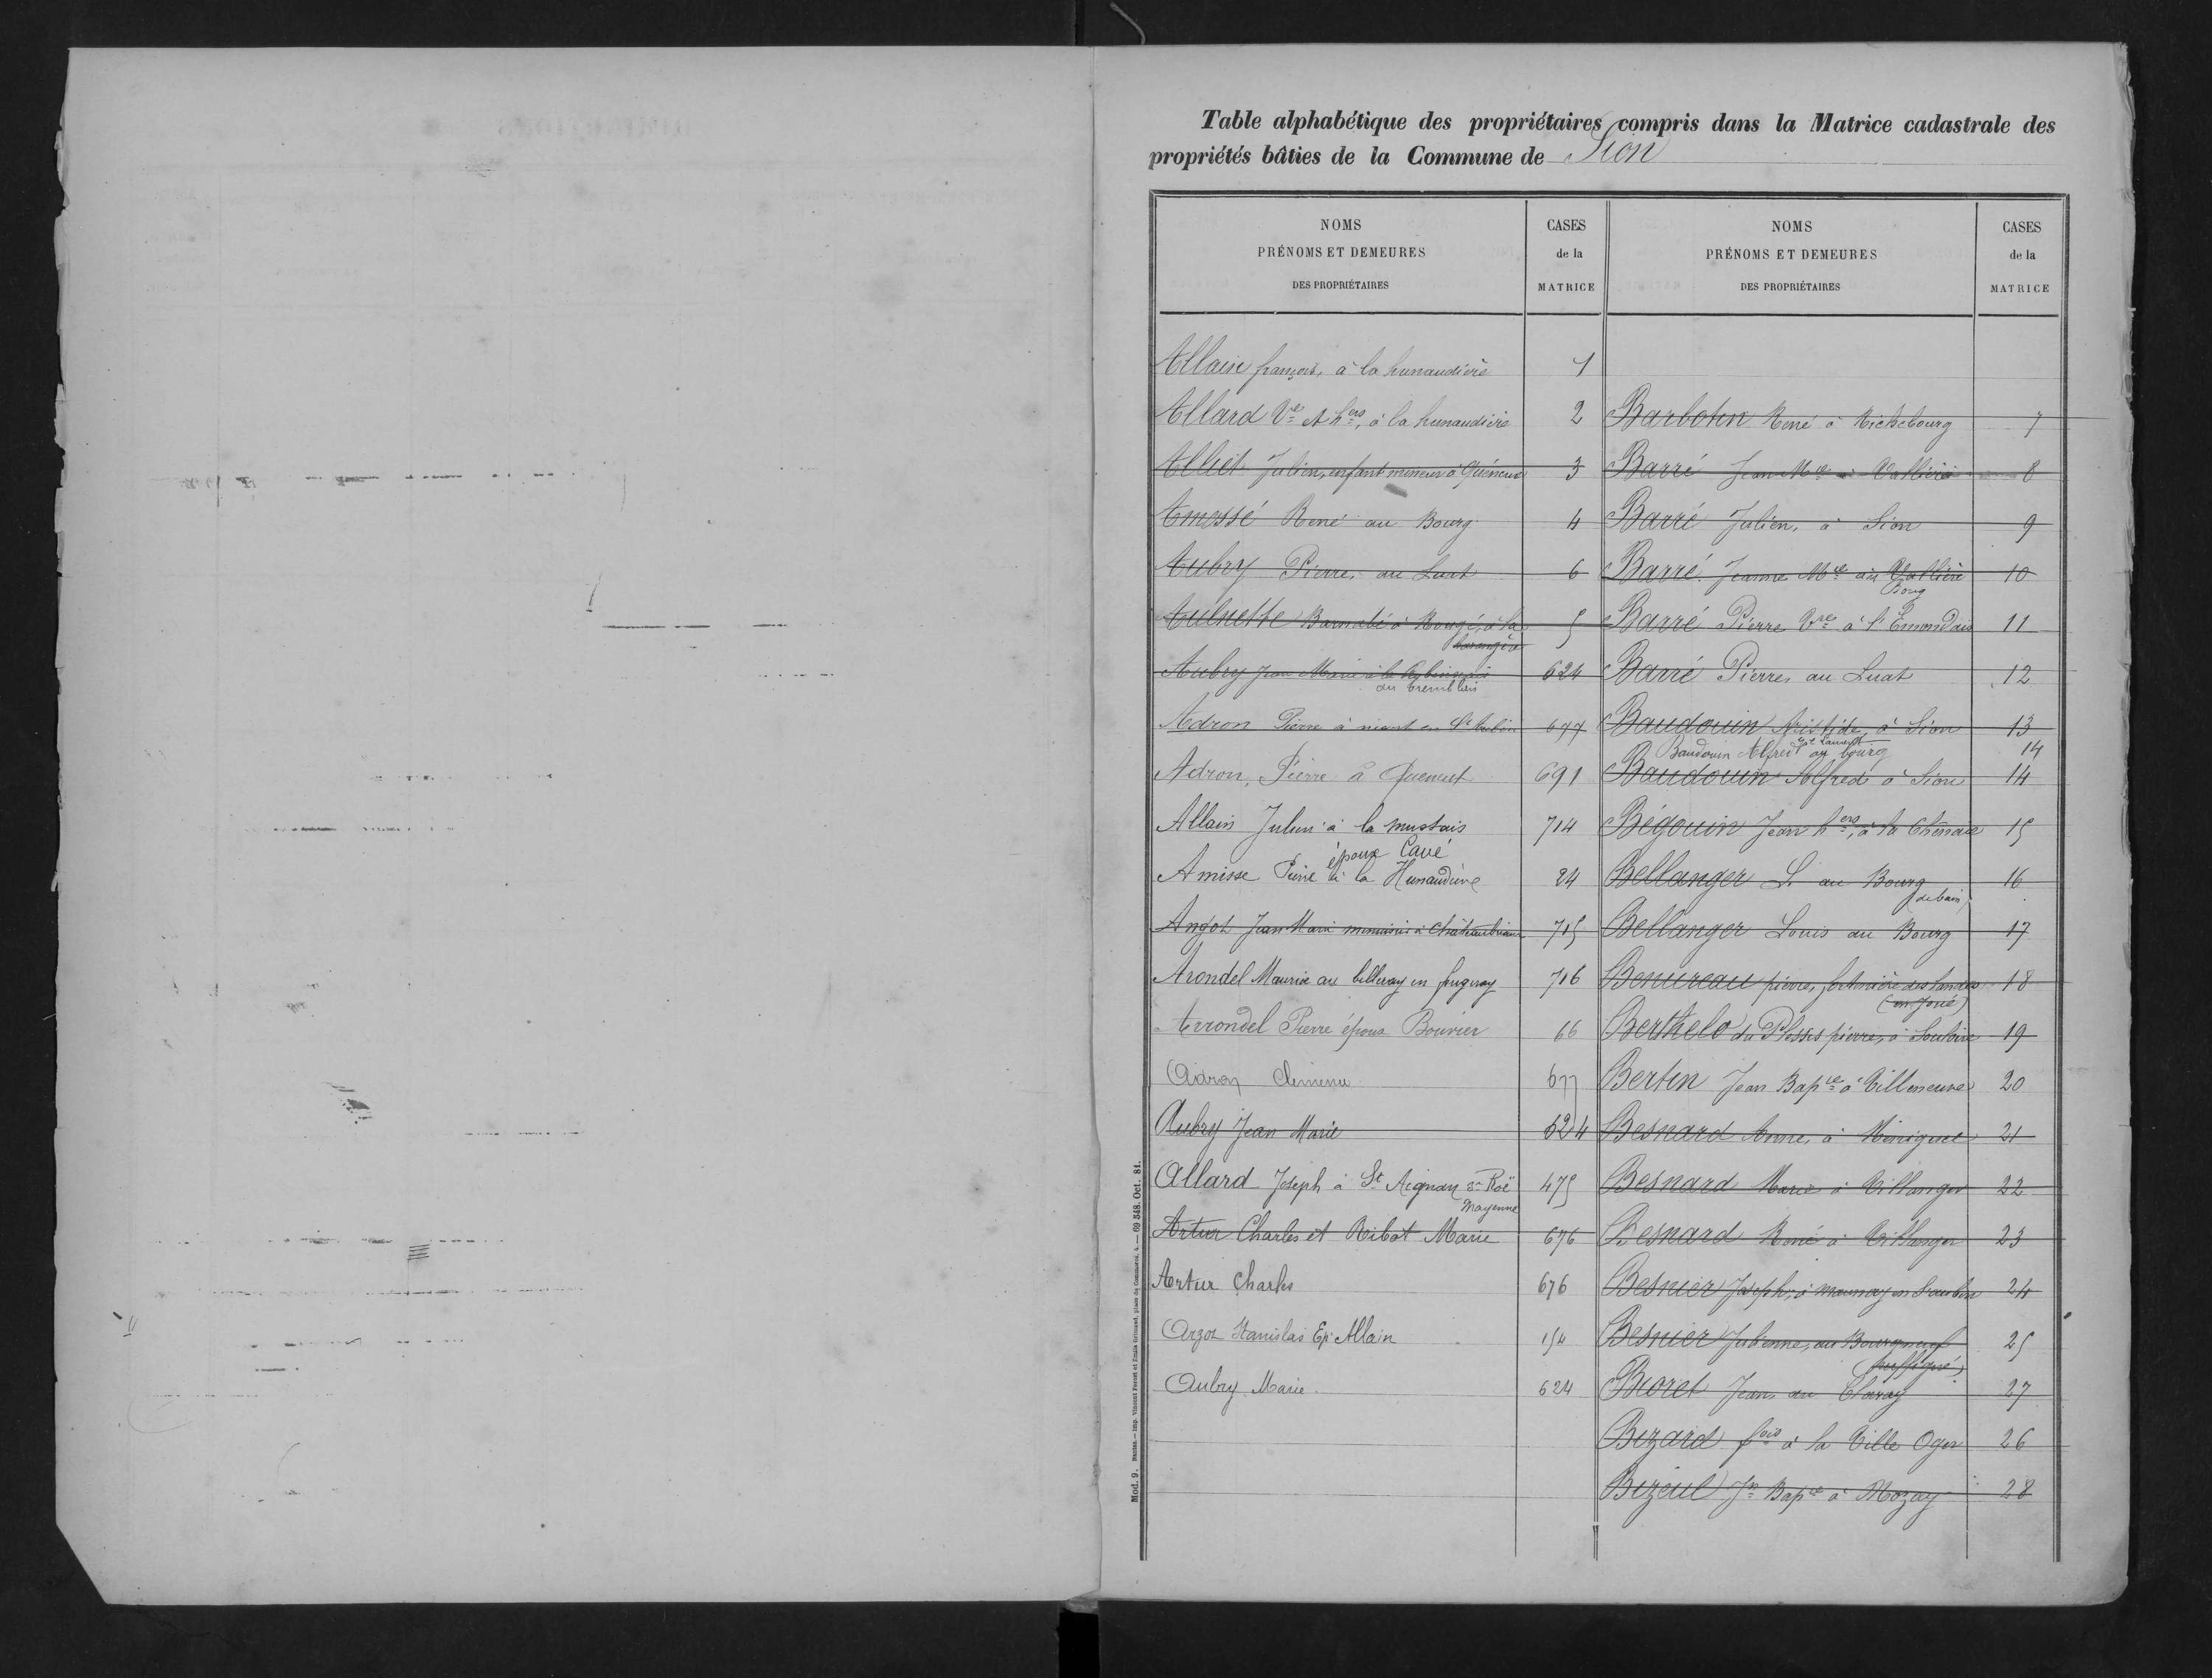 Table alphabétique des propriétaires compris dans la Matrice cadastrale des
propriétés bâties de la Commune de Sion
NOMS
PRÉNOMS ET DEMEURES
DES PROPRIÉTAIRES
CASES
de la
MATRICE
Allaire françois, à la hunaudière 1
Allard Vve et hers, à la hunaudière 2
Julien, enfant mineur à Quéneux 3
Amossé René au Bourg 4
Aubry Pierre, au Luat 6
Aulnette Barnabé à Rougé, à la 5
Aubry Jean Marie à la 624
du Tremblais
Adron Pierre à en St Aubin 677
Adron, Pierre à 691
Allain Julien à la mustais 714
époux Cavé
Amisse Pierre à la Hunaudière 24
Angot Jean Marie à Châteaubriant 715
Arondel Maurice au en fougeray 716
Arrondel Pierre époux Bouvier 66
Adron 677
Aubry Jean Marie 624
Allard Joseph à St Aignan s- Roë 475
Mayenne
Artur Charles et Ribot Marie 676
Artur Charles 676
Stanislas Ep. Allain 154
Aubry Marie 624
NOMS
PRÉNOMS ET DEMEURES
DES PROPRIÉTAIRES
CASES
de la
MATRICE
Barbotin René à Richebourg 7
Barré Jean Mie à Vallière 8
Barré Julien, à Sion 9
Barré Jeanne Mie au Vallière 10
Bourg
Barré Pierre Vve à l'Emondais 11
Barré Pierre, au Luat 12
Baudouin Aristide, à Sion 13
Baudouin Alfred au bourg 14
Baudouin Alfred à Sion 14
Bégouin Jean hers, à la Chênaie 15
Bellanger L. au Bourg 16
de bain
Bellanger Louis au Bourg 17
Benureau pierre, des landes 18
(en Joué)
Berthelo du Plessis pierre, à 19
Bertin Jean Bapte à Villeneuve 20
Besnard Anne, à 21
Besnard Marie à Villanger 22
Besnard René à Villanger 23
Besnier Joseph, à en St aubin 24
Besnier Julienne, au Bourgneuf 25
Bioret Jean au Claray 27
Bizard fois à la Ville Oger 26
Bizeul Jn Bapte à Mozay 28
Mod. 9. NANTES. — Imp. Vincent Forest et Emile Grimaud, place du Commerce, 4. — 69 348. Oct. 81.